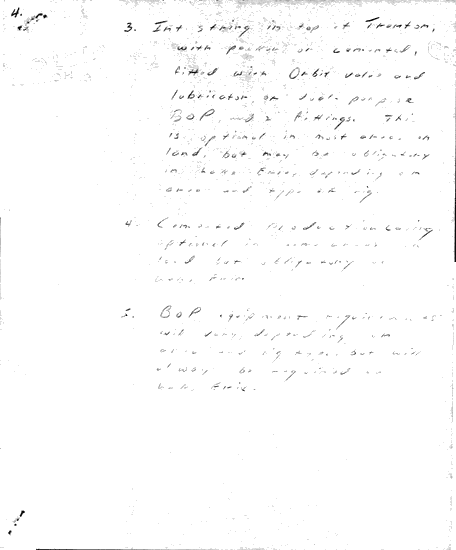 4.
3. Int string in top of Trenton,
with packer or cemented,
fitted with Orbit valve and
lubricator, or dual purpose
BOP, and 2 fittings. This
is optional in most areas on
land, but may be obligatory
in Lake Erie, depending on
area and type of rig.
4. Cemented Production Casing
optional in some areas on
land but obligatory in
Lake Erie
5. BOP equipment requirements
will vary, depending on
area and rig type, but will
always be required in
Lake Erie.